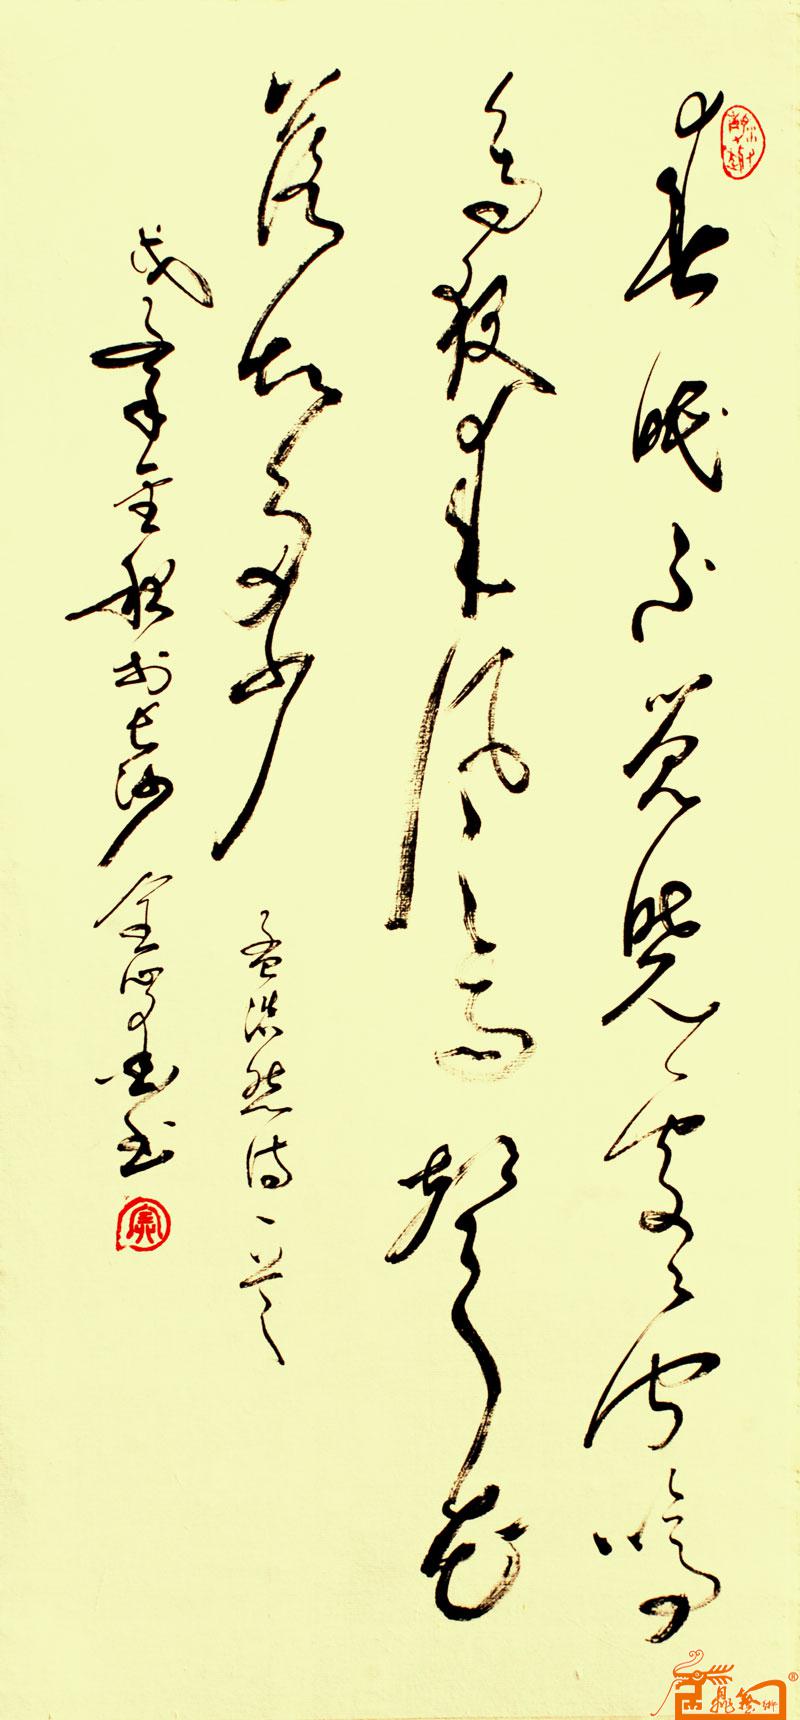 春眠不觉晓处处闻啼
鸟夜来风雨声花
落知多少 孟浩然诗一首
戊子年金秋于长沙 书